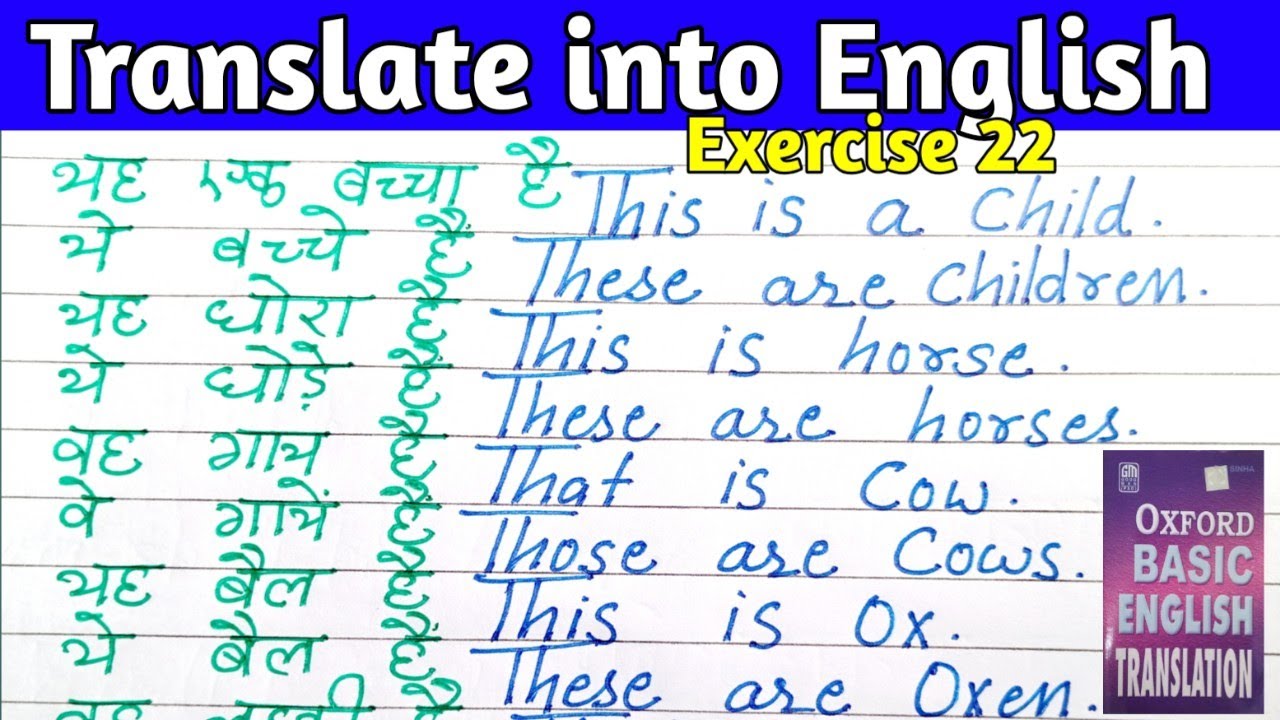 Translate into English
Exercise 22
यह एक बच्चा है This is a Child.
ये बच्चे हैं These are Children.
यह घोरा है This is horse.
ये घोड़े हैं These are horses.
वह गाय है That is Cow.
वे गायें हैं Those are Cows.
यह बैल है This is Ox.
ये बैल हैं These are Oxen.
GM
SINHA
OXFORD
BASIC
ENGLISH
TRANSLATION